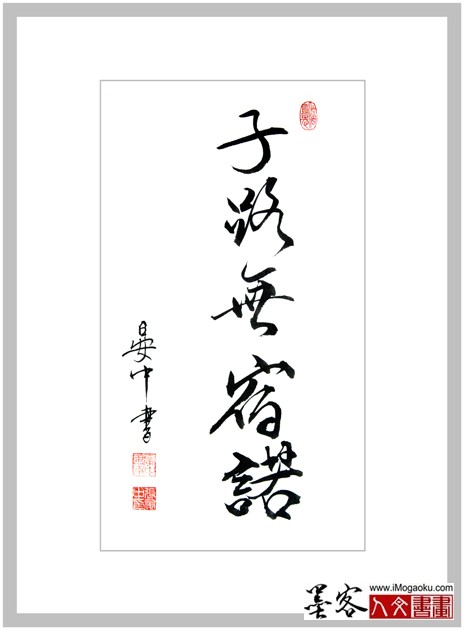 子路無宿諾
晏中書
墨客
www.iMogaoku.com
人文書畫